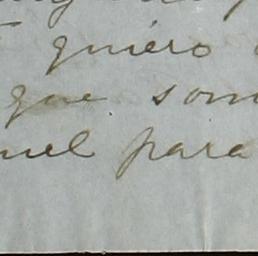 quiero
que som
nel para